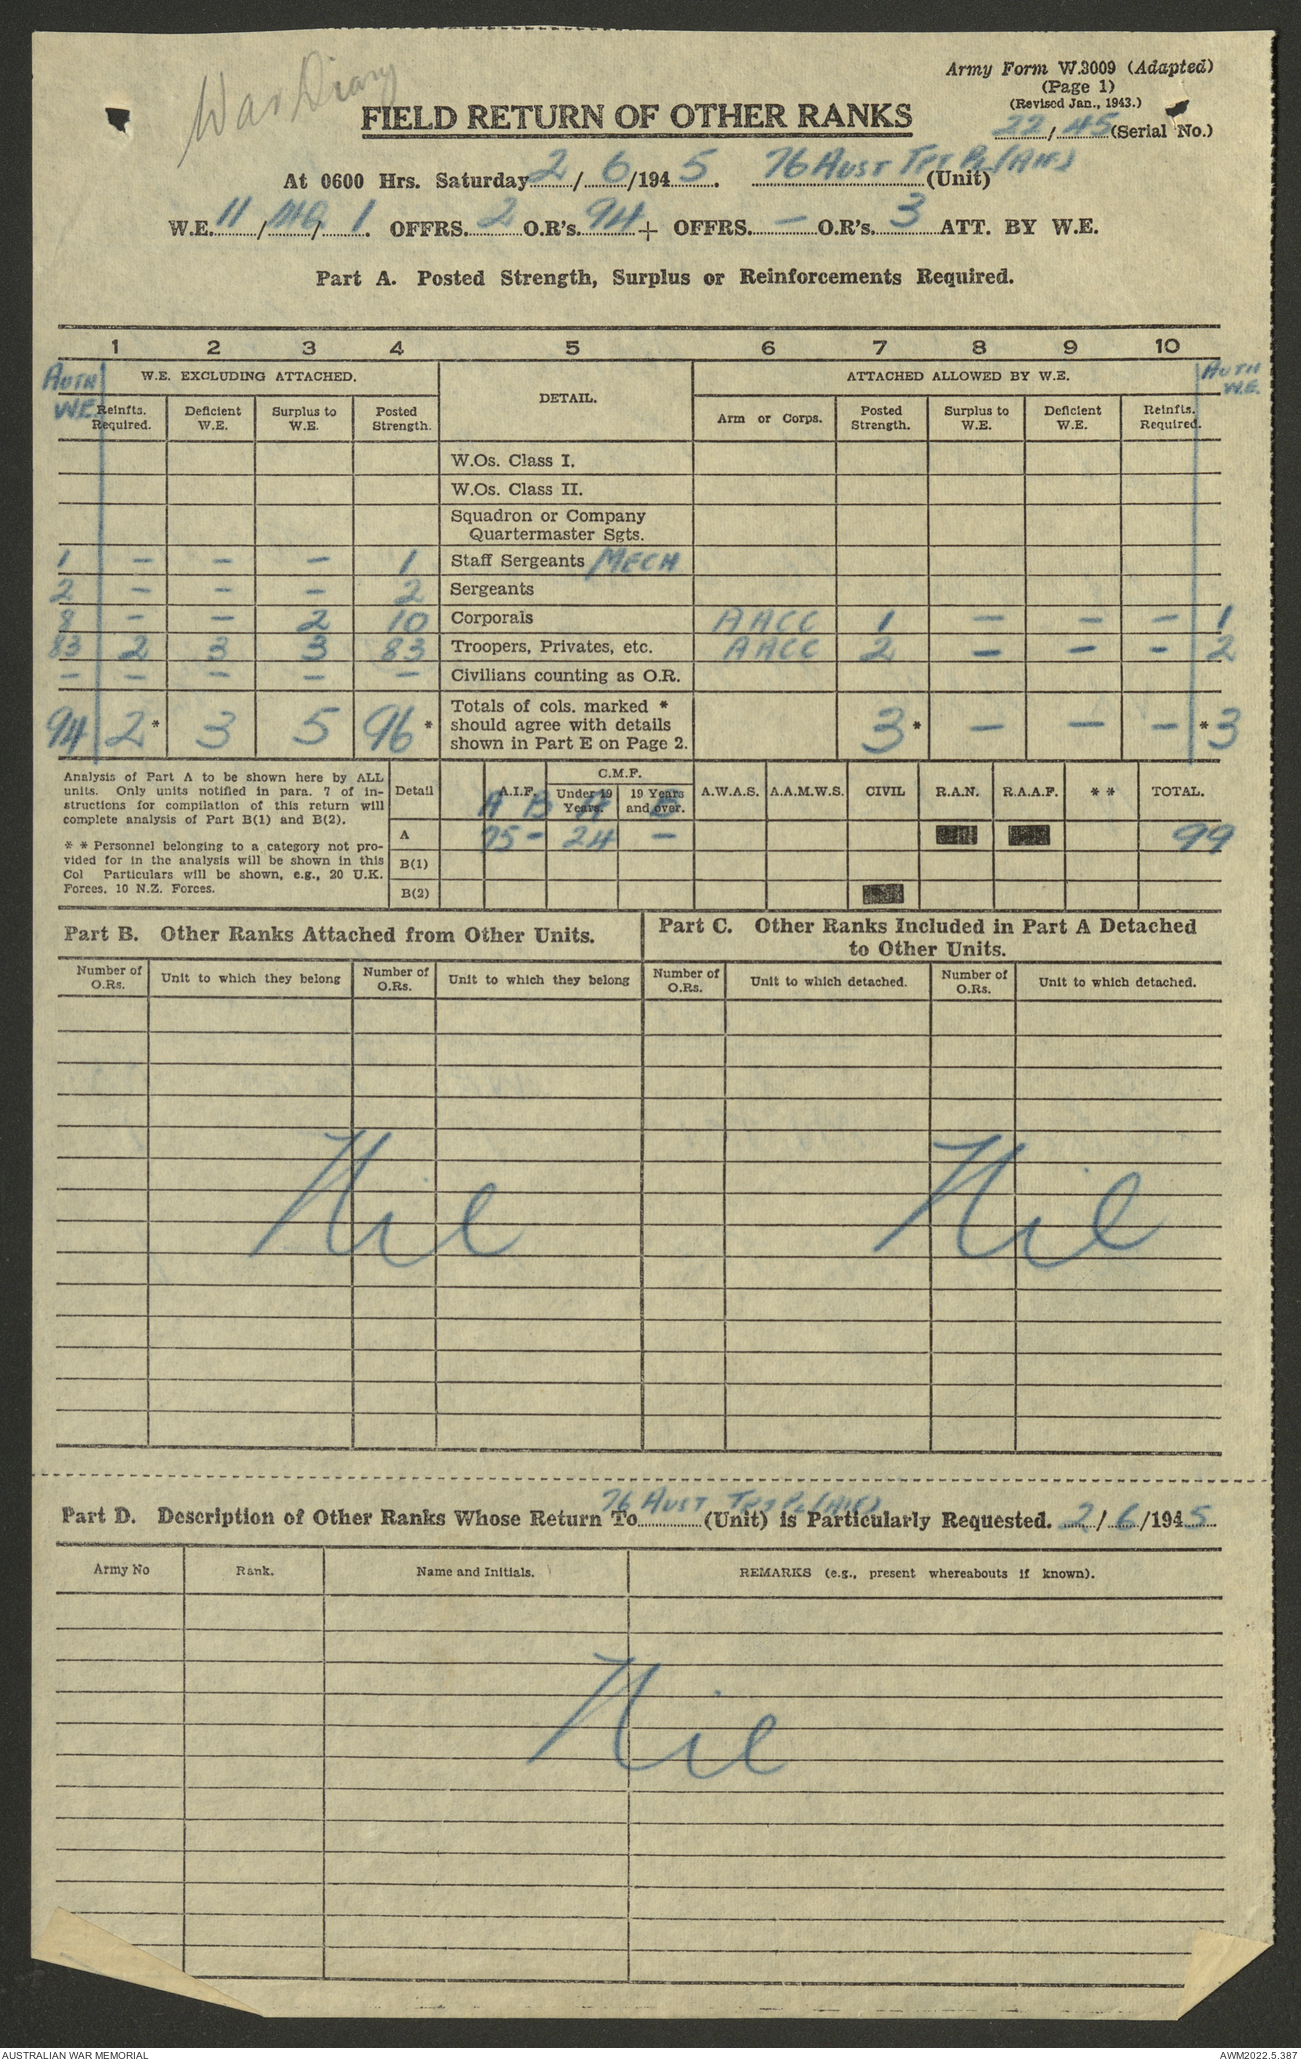 War Diary
Army Form W.3009 (Adapted)
(Page 1)
(Revised Jan., 1943.)
FIELD RETURN OF OTHER RANKS
22/45 (Serial No.)
At 0600 Hrs. Saturday 2/6/1945. 76 AUST TPT PL (AIF) (Unit)
W.E. 11/HQ/1. OFFRS. 2 O.R's. 94 + OFFRS. — O.R's. 3 ATT. BY W.E.
Part A. Posted Strength, Surplus or Reinforcements Required.
1 2 3 4 5 6 7 8 9 10
AUTH W.E. W.E. EXCLUDING ATTACHED. DETAIL. ATTACHED ALLOWED BY W.E. AUTH W.E.
Reinfts. Required. Deficient W.E. Surplus to W.E. Posted Strength. Arm or Corps. Posted Strength. Surplus to W.E. Deficient W.E. Reinfts. Required.
W.Os. Class I.
W.Os. Class II.
Squadron or Company
Quartermaster Sgts.
1 — — — 1 Staff Sergeants MECH
2 — — — 2 Sergeants
8 — — 2 10 Corporals AACC 1 — — — 1
83 2 3 3 83 Troopers, Privates, etc. AACC 2 — — — 2
— — — — — Civilians counting as O.R.
94 2* 3 5 96* Totals of cols. marked * should agree with details shown in Part E on Page 2. 3* — — —* 3
Analysis of Part A to be shown here by ALL
units. Only units notified in para. 7 of in-
structions for compilation of this return will
complete analysis of Part B(1) and B(2).
* * Personnel belonging to a category not pro-
vided for in the analysis will be shown in this
Col Particulars will be shown, e.g., 20 U.K.
Forces, 10 N.Z. Forces.
C.M.F.
Detail A.I.F. Under 19 Years. 19 Years and over. A.W.A.S. A.A.M.W.S. CIVIL R.A.N. R.A.A.F. * * TOTAL.
A B A B
A 75 — 24 — 99
B(1)
B(2)
Part B. Other Ranks Attached from Other Units.
Part C. Other Ranks Included in Part A Detached
to Other Units.
Number of O.Rs. Unit to which they belong Number of O.Rs. Unit to which they belong Number of O.Rs. Unit to which detached. Number of O.Rs. Unit to which detached.
Nil Nil
Part D. Description of Other Ranks Whose Return To 76 AUST TPT PL (AIF) (Unit) is Particularly Requested. 2/6/1945
Army No Rank. Name and Initials. REMARKS (e.g., present whereabouts if known).
Nil
AUSTRALIAN WAR MEMORIAL AWM2022.5.387